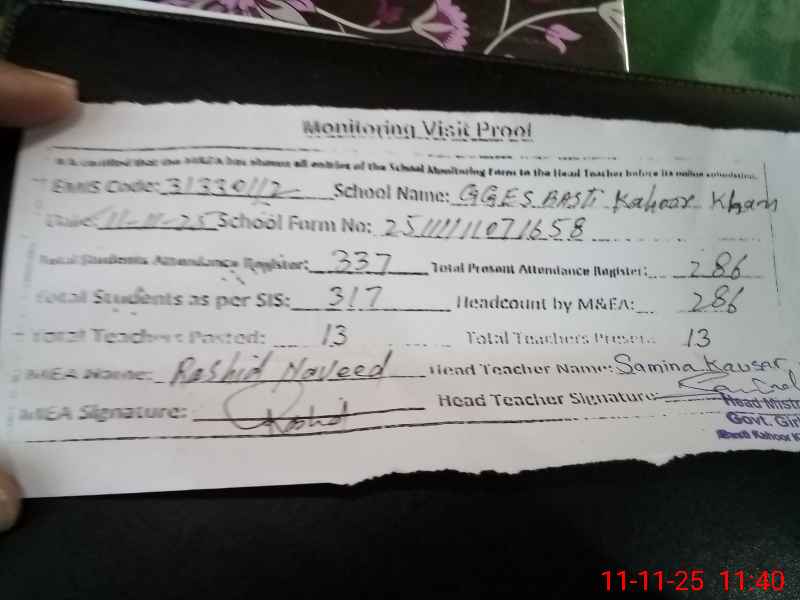 Monitoring Visit Proof
It is certified that the M&EA has shown all entries of the School Monitoring Form to the Head Teacher before its online submission.
EMIS Code: 31330112 School Name: GGES BASTI Kahoor Khan
Date: 11-11-25 School Form No: 25111111071658
Total Students Attendance Register: 337 Total Present Attendance Register: 286
Total Students as per SIS: 317 Headcount by M&EA: 286
Total Teachers Posted: 13 Total Teachers Present: 13
MEA Name: Rashid Naveed Head Teacher Name: Samina Kausar
MEA Signature: Rashid Head Teacher Signature:
Head Mistr
Govt. Girl
Basti Kahoor K
11-11-25 11:40